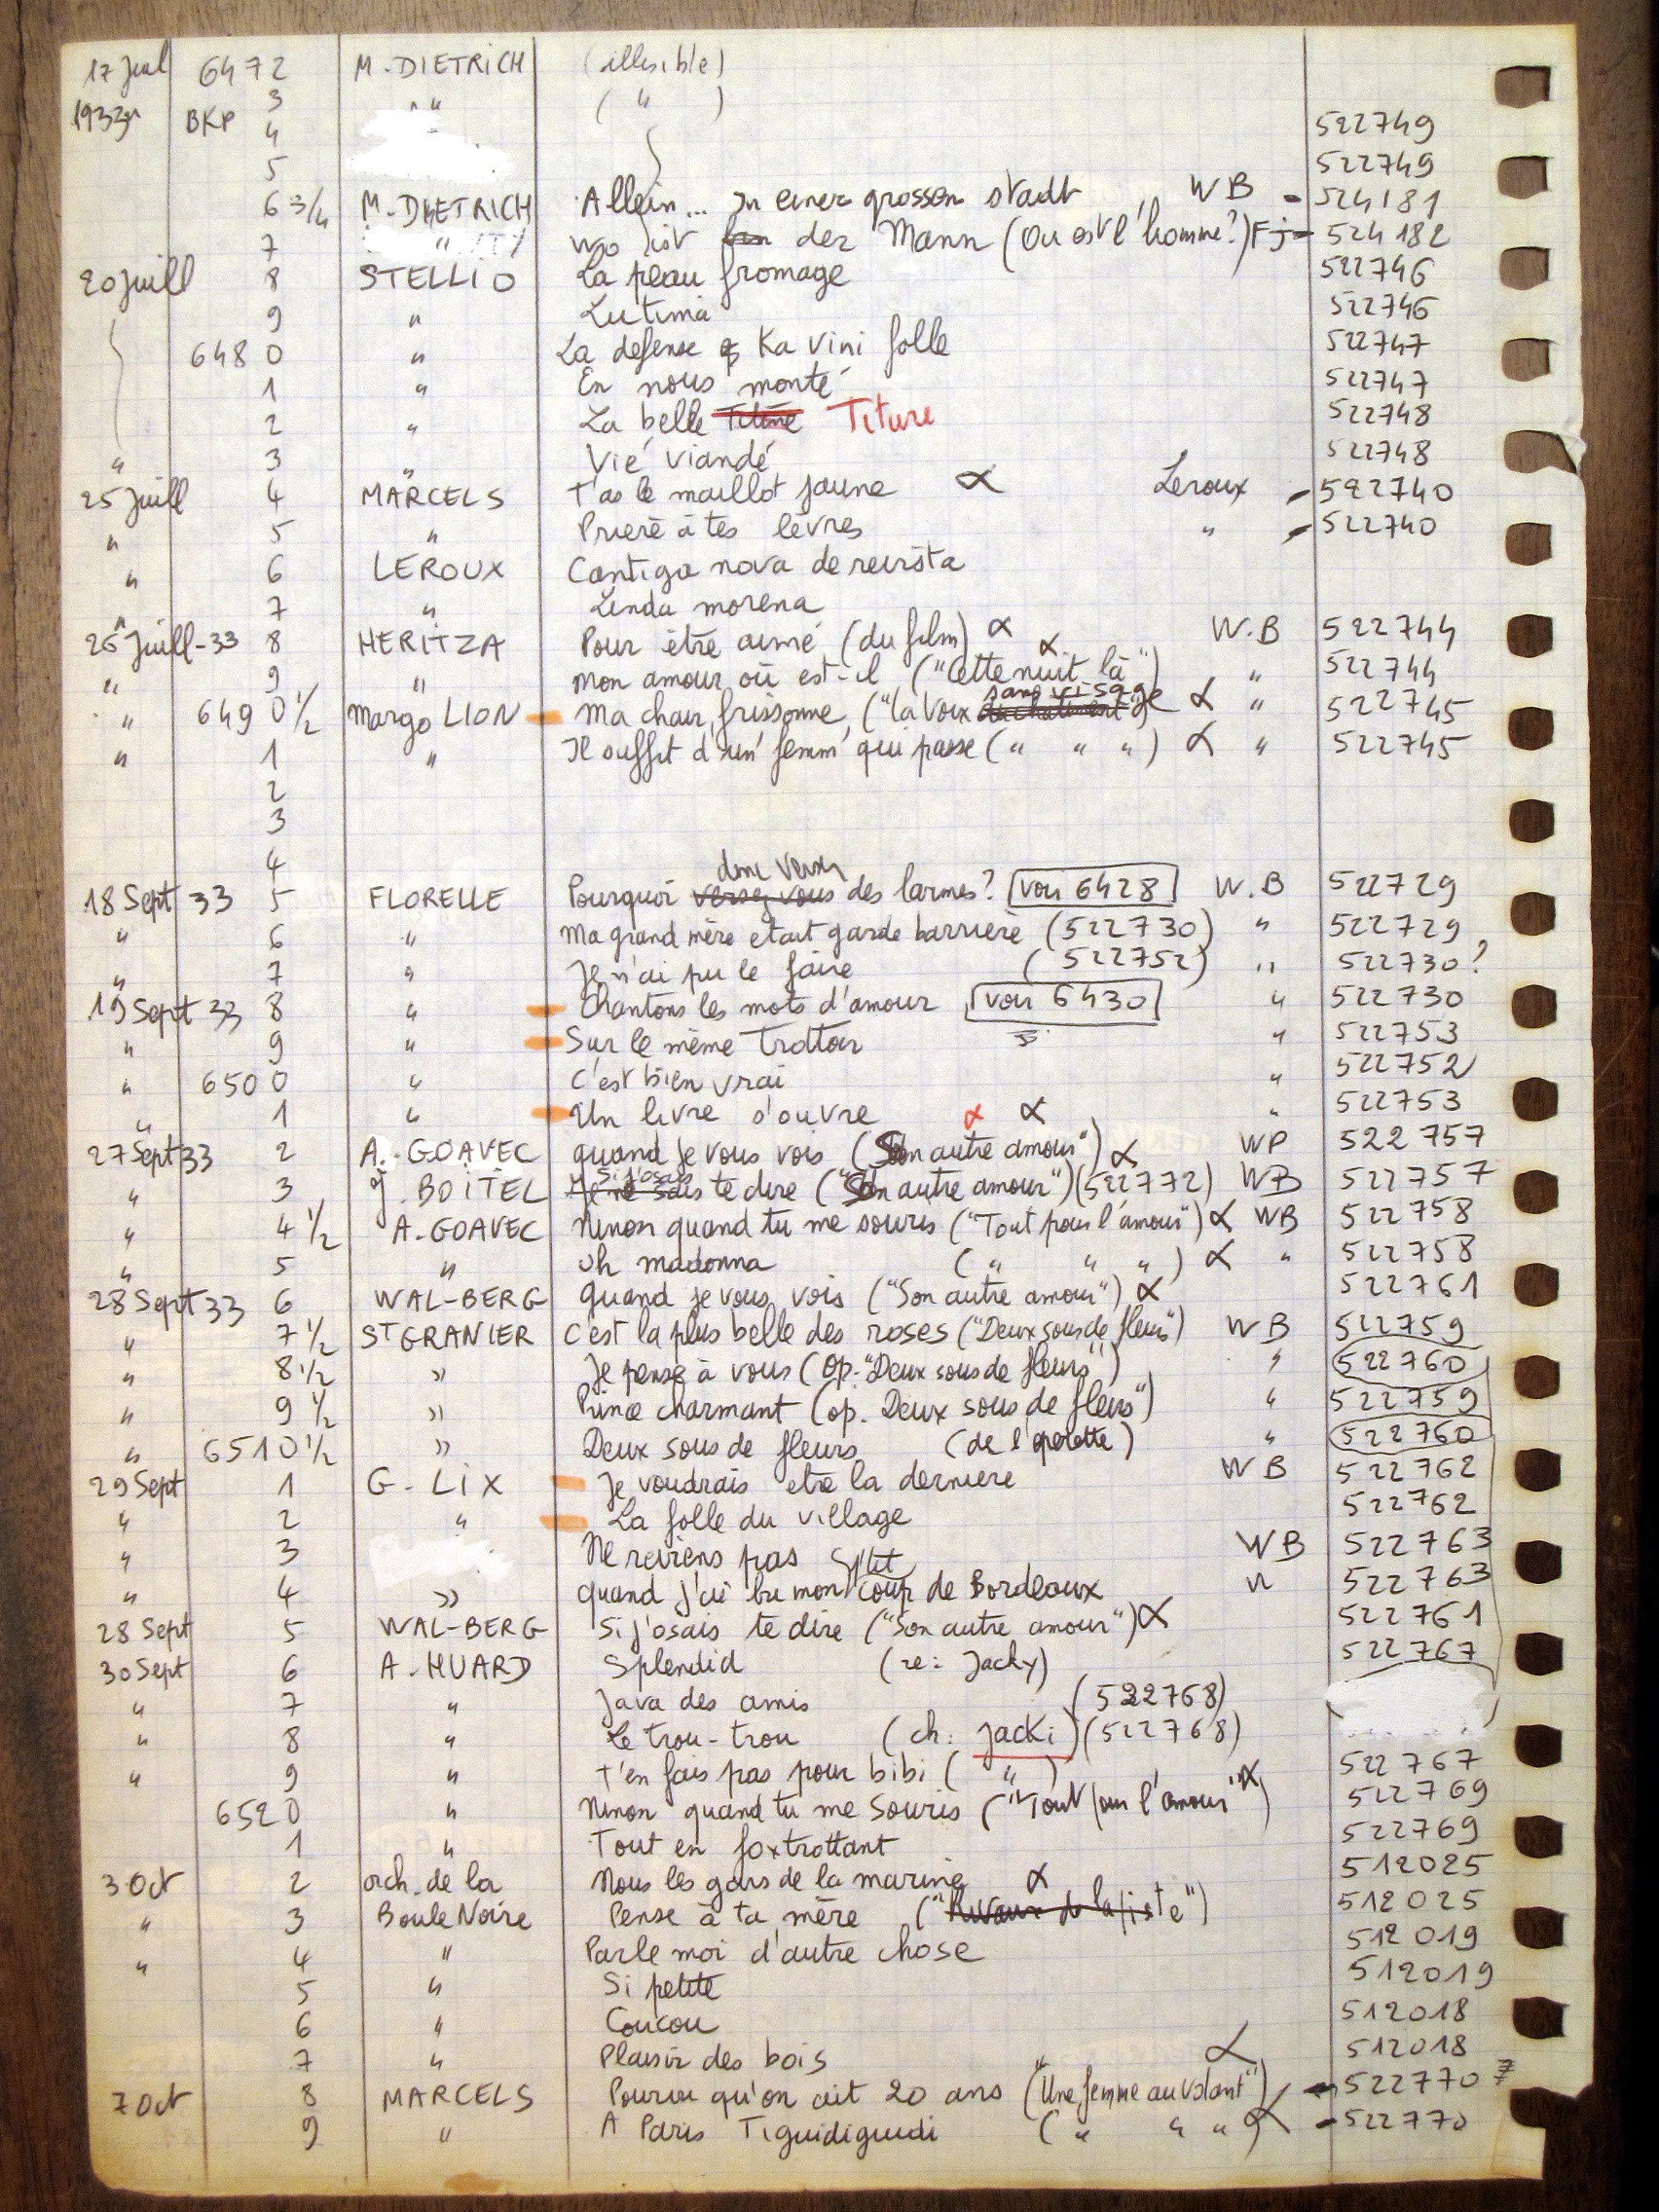 17 Juil 6472 M. DIETRICH (illisible)
3 " " ( " )
1933 BKP 4 522749
5 522749
6 3/4 M. DIETRICH Allein... In einer grossen stadt WB - 524181
7 " Wo ist der Mann (Où est l'homme?) Fj - 524182
20 Juill 8 STELLIO La peau fromage 522746
9 " Lutima 522746
648 0 " La defense Ka vini folle 522747
1 " En nous monté 522747
2 " La belle Titine Titure 522748
" 3 " Vié viandé 522748
25 Juill 4 MARCELS T'as le maillot jaune α Leroux - 522740
" 5 " Prierè à tes lèvres " - 522740
" 6 LEROUX Cantiga nova de revista
" 7 " Linda morena
26 Juill-33 8 HERITZA Pour être aimé (du film) α W.B 522744
" 9 " Mon amour où est-il ("Cette nuit là") α " 522744
" 649 0 1/2 Margo LION - Ma chair frissonne ("La Voix sans visage α " 522745
" 1 " Il suffit d'un' femm' qui passe (" " ") α " 522745
2
3
4
18 Sept 33 5 FLORELLE Pourquoi versez-vous des larmes? voir 6428 W.B 522729
" 6 " Ma grand mère etait garde barrière (522730) " 522729
" 7 " Je n'ai pu le faire (522752) " 522730?
19 Sept 33 8 " - Chantons les mots d'amour voir 6430 " 522730
" 9 " - Sur le même Trottoir " 522753
" 650 0 " C'est bien vrai " 522752
" 1 " - Un livre s'ouvre α α " 522753
27 Sept 33 2 A. GOAVEC quand je vous vois (Son autre amour") α WP 522757
" 3 J. BOITEL Si j'osais te dire ("Son autre amour") (522772) WB 522757
" 4 1/2 A. GOAVEC Ninon quand tu me souris ("Tout pour l'amour") α WB 522758
" 5 " Oh madonna (" " ") α " 522758
28 Sept 33 6 WAL-BERG Quand je vous vois ("Son autre amour") α 522761
" 7 1/2 ST GRANIER C'est la plus belle des roses ("Deux sous de fleurs") WB 522759
" 8 1/2 » Je pense à vous (Op. "Deux sous de fleurs") " 522760
" 9 1/2 » Prince charmant (op. Deux sous de fleurs") " 522759
" 651 0 1/2 » Deux sous de fleurs (de l'operette) " 522760
29 Sept 1 G. LIX - Je voudrais etre la derniere WB 522762
" 2 " - La folle du village 522762
" 3 Ne reviens pas WB 522763
" 4 » quand j'ai bu mon p'tit coup de Bordeaux " 522763
28 Sept 5 WAL-BERG Si j'osais te dire ("Son autre amour") α 522761
30 Sept 6 A. HUARD Splendid (re: Jacky) 522767
" 7 " Java des amis (522768)
" 8 " Le trou-trou (ch: Jacki) (522768)
" 9 " T'en fais pas pour bibi ( " ) 522767
652 0 " Ninon quand tu me souris ("Tout pour l'amour") α 522769
1 " Tout en foxtrottant 522769
3 Oct 2 orch. de la Nous les gars de la marine α 512025
" 3 Boule Noire Pense à ta mère ("Rivaux de la piste") 512025
" 4 " Parle moi d'autre chose 512019
5 " Si petite 512019
6 " Coucou 512018
7 " Plaisir des bois 512018
7 Oct 8 MARCELS Pourvu qu'on ait 20 ans ("Une femme au volant") α - 522770
9 " A Paris Tiguidiguidi (" " ") α - 522770